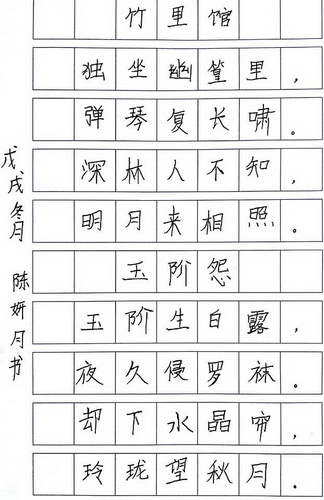 竹里馆
独坐幽篁里，
弹琴复长啸。
深林人不知，
明月来相照。
玉阶怨
玉阶生白露，
夜久侵罗袜。
却下水晶帘，
玲珑望秋月。
戊戌冬月 陈妍月书